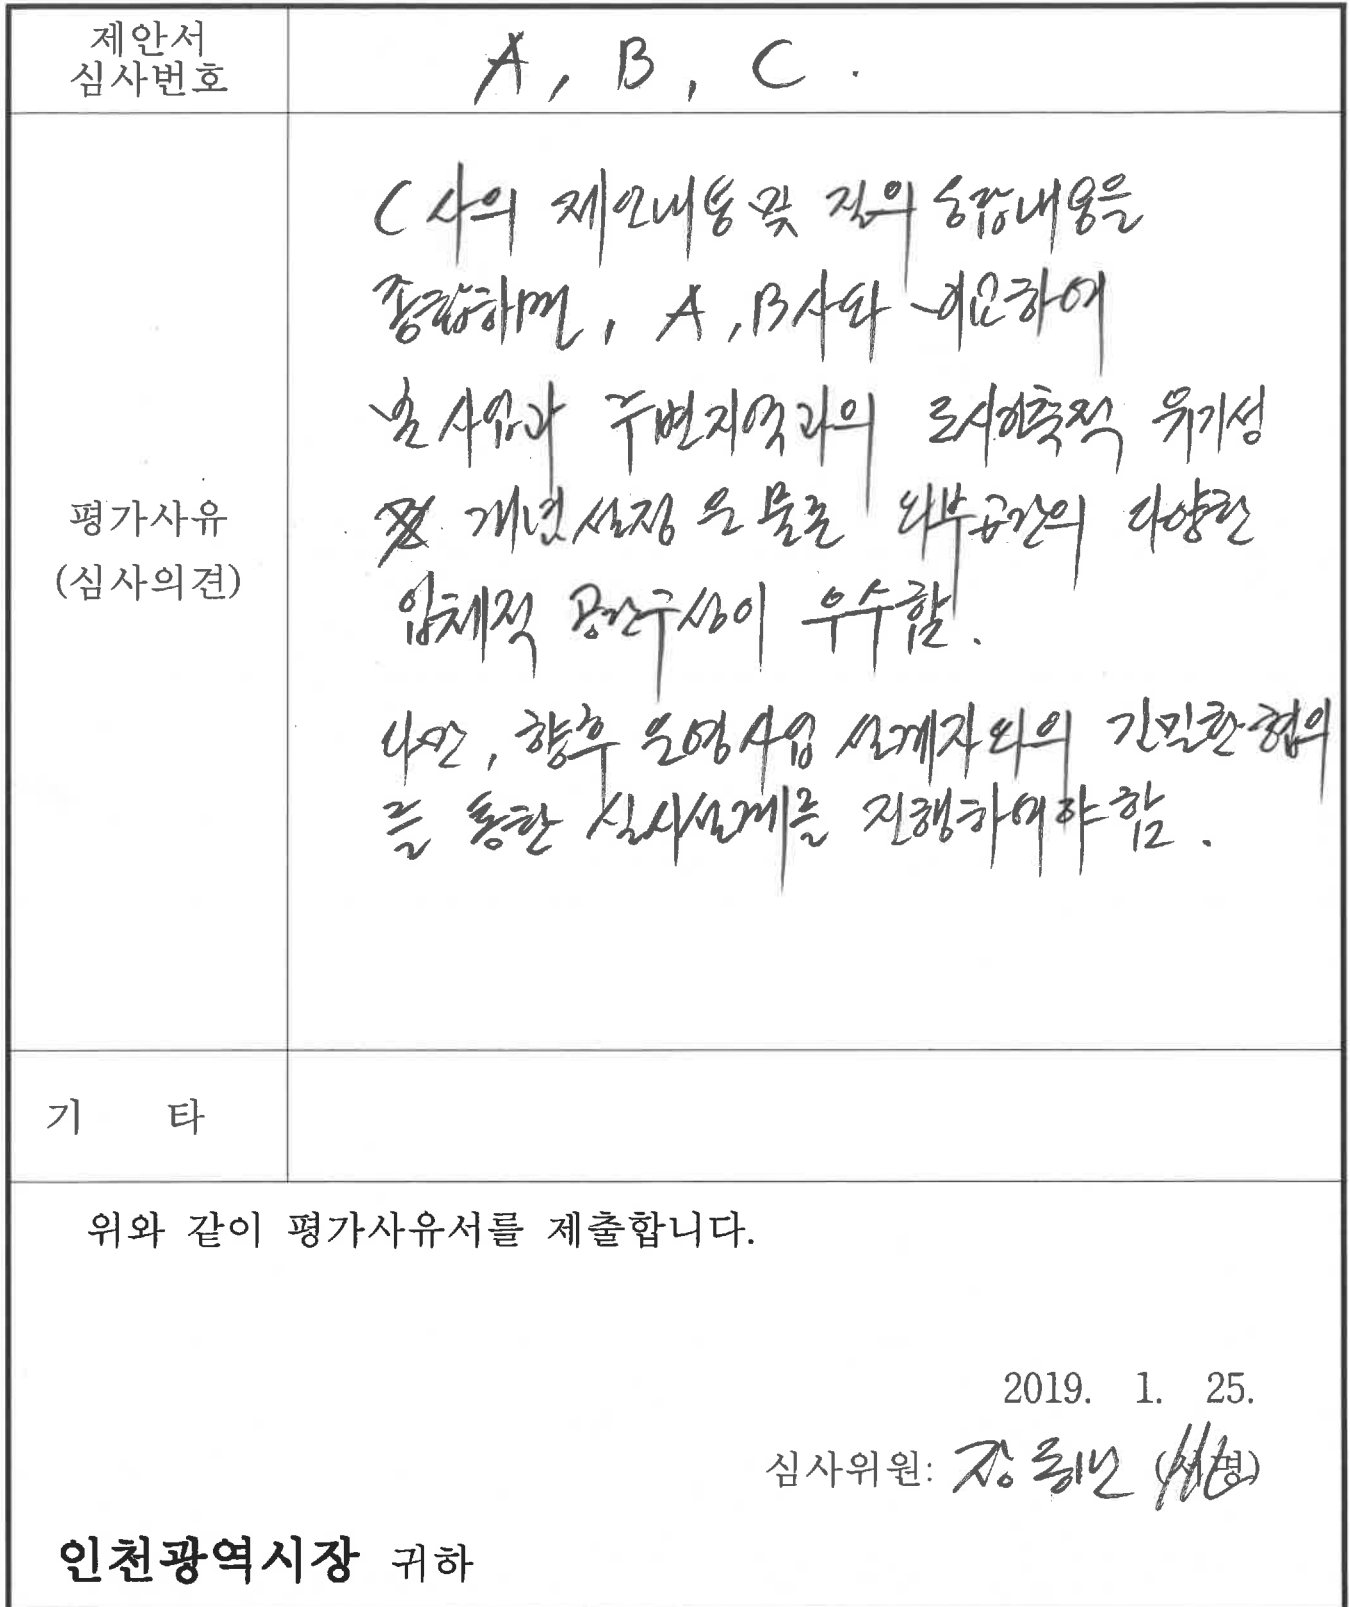 제안서
심사번호
A, B, C.
C사의 제안내용 및 질의 응답내용을
종합하면, A, B사와 비교하여
본 사업과 주변지역과의 도시건축적 유기성
개념설정은 물론 외부공간의 다양한
입체적 공간구성이 우수함.
평가사유
(심사의견)
다만, 향후 운영사업 설계자와의 긴밀한 협의
를 통한 실시설계를 진행하여야 함.
기 타
위와 같이 평가사유서를 제출합니다.
2019. 1. 25.
심사위원: 장 (서명)
인천광역시장 귀하